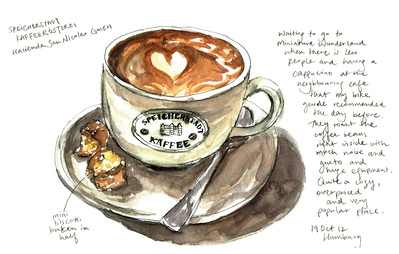 SPEICHERSTADT
KAFFEERÖSTEREI
Hacienda San Nicolas GmbH
SPEICHERSTADT
KAFFEE
mini
biscotti
broken in
half
Waiting to go to
Miniature Wunderland
when there is less
people and having a
cappucino at the
neighbouring cafe
that my bike
guide recommended
the day before.
They roast the
coffee beans
right inside with
much noise and
gusto and
huge equipment.
Quite a cosy,
overpriced
and very
popular place.
19 Oct 12
Hamburg